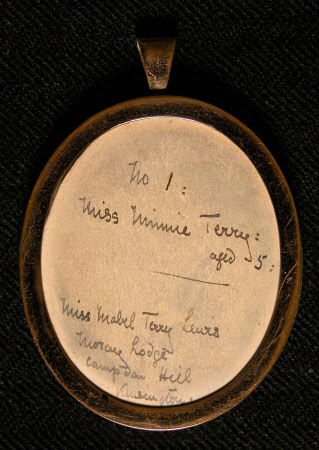 No 1:
Miss Minnie Terry:
aged 5:
Miss Mabel Terry Lewis
Moray Lodge
Campden Hill
Kensington